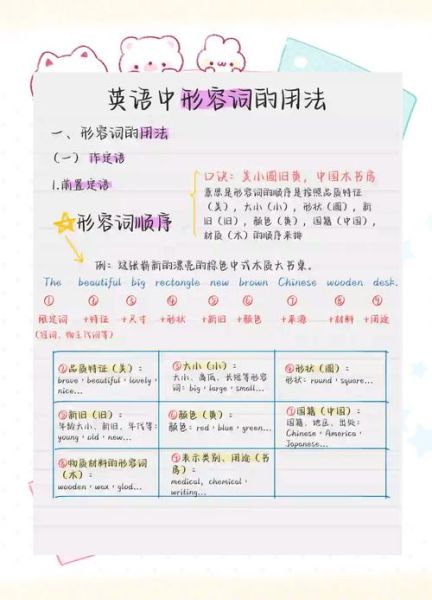 英语中形容词的用法
一、形容词的用法
(一) 作定语
1.前置定语
☆形容词顺序
口诀：美小圆旧黄，中国木书房
意思是形容词的顺序是按照品质特征
（美），大小（小），形状（圆），新
旧（旧），颜色（黄），国籍（中国），
材质（木）的顺序来排
例：这张崭新的漂亮的棕色中式木质大书桌。
The beautiful big rectangle new brown Chinese wooden desk.
① ② ③ ④ ⑤ ⑥ ⑦ ⑧ ⑨
限定词 +特征 +尺寸 +形状 +新旧 +颜色 +来源 +材料 +用途
(冠词、物主代词等)
②品质特征（美）：
brave，beautiful，lovely，
nice...
③大小（小）：
大小、高低、长短等形容
词：big，large，small...
④形状（圆）：
形状：round，square...
⑤新旧（旧）：
年龄大小、新旧、年代等：
young，old，new...
⑥颜色（黄）：
颜色：red，blue，green...
⑦国籍（中国）：
国籍、地区、出处：
Chinese，America，
Japanese...
⑧物质材料的形容词
（木）：
wooden，wax，glod...
⑨表示类别、用途（书
房）：
medical，chemical，
writing...